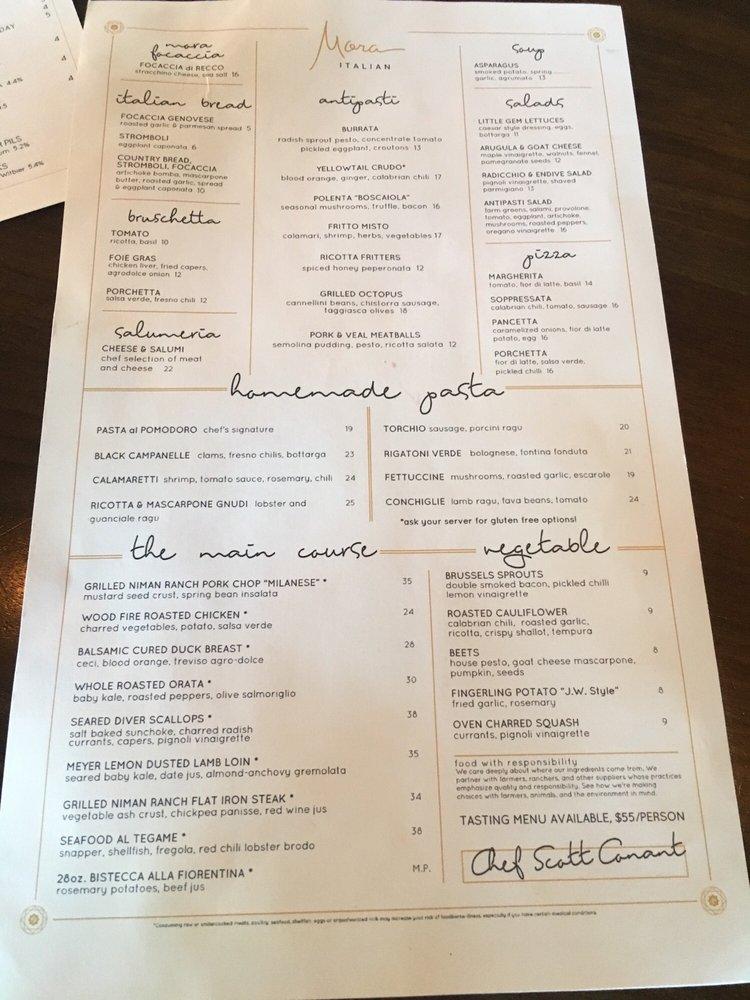 DAY
4
5
4
4
4.4%
PILS
5.2%
Witbier 5.4%
Mora
ITALIAN
mora
focaccia
FOCACCIA di RECCO
stracchino cheese, sea salt 16
italian bread
FOCACCIA GENOVESE
roasted garlic & parmesan spread 5
STROMBOLI
eggplant caponata 6
COUNTRY BREAD,
STROMBOLI, FOCACCIA
artichoke bomba, mascarpone
butter, roasted garlic, spread
& eggplant caponata 10
bruschetta
TOMATO
ricotta, basil 10
FOIE GRAS
chicken liver, fried capers,
agrodolce onion 12
PORCHETTA
salsa verde, fresno chili 12
salumeria
CHEESE & SALUMI
chef selection of meat
and cheese 22
antipasti
BURRATA
radish sprout pesto, concentrate tomato
pickled eggplant, croutons 13
YELLOWTAIL CRUDO*
blood orange, ginger, calabrian chili 17
POLENTA "BOSCAIOLA"
seasonal mushrooms, truffle, bacon 16
FRITTO MISTO
calamari, shrimp, herbs, vegetables 17
RICOTTA FRITTERS
spiced honey peperonata 12
GRILLED OCTOPUS
cannellini beans, chistorra sausage,
taggiasca olives 18
PORK & VEAL MEATBALLS
semolina pudding, pesto, ricotta salata 12
soup
ASPARAGUS
smoked potato, spring
garlic, agrumato 13
salads
LITTLE GEM LETTUCES
caesar style dressing, eggs,
bottarga 11
ARUGULA & GOAT CHEESE
maple vinaigrette, walnuts, fennel,
pomegranate seeds 12
RADICCHIO & ENDIVE SALAD
pignoli vinaigrette, shaved
parmigiano 13
ANTIPASTI SALAD
farm greens, salami, provolone,
tomato, eggplant, artichoke,
mushrooms, roasted peppers,
oregano vinaigrette 16
pizza
MARGHERITA
tomato, fior di latte, basil 14
SOPPRESSATA
calabrian chili, tomato, sausage 16
PANCETTA
caramelized onions, fior di latte
potato, egg 16
PORCHETTA
fior di latte, salsa verde,
pickled chili 16
homemade pasta
PASTA al POMODORO chef's signature 19
BLACK CAMPANELLE clams, fresno chilis, bottarga 23
CALAMARETTI shrimp, tomato sauce, rosemary, chili 24
RICOTTA & MASCARPONE GNUDI lobster and 25
guanciale ragu
TORCHIO sausage, porcini ragu 20
RIGATONI VERDE bolognese, fontina fonduta 21
FETTUCCINE mushrooms, roasted garlic, escarole 19
CONCHIGLIE lamb ragu, fava beans, tomato 24
*ask your server for gluten free options!
the main course
GRILLED NIMAN RANCH PORK CHOP "MILANESE" * 35
mustard seed crust, spring bean insalata
WOOD FIRE ROASTED CHICKEN * 24
charred vegetables, potato, salsa verde
BALSAMIC CURED DUCK BREAST * 28
ceci, blood orange, treviso agro-dolce
WHOLE ROASTED ORATA * 30
baby kale, roasted peppers, olive salmoriglio
SEARED DIVER SCALLOPS * 38
salt baked sunchoke, charred radish
currants, capers, pignoli vinaigrette
MEYER LEMON DUSTED LAMB LOIN * 35
seared baby kale, date jus, almond-anchovy gremolata
GRILLED NIMAN RANCH FLAT IRON STEAK * 34
vegetable ash crust, chickpea panisse, red wine jus
SEAFOOD AL TEGAME * 38
snapper, shellfish, fregola, red chili lobster brodo
28oz. BISTECCA ALLA FIORENTINA * M.P.
rosemary potatoes, beef jus
vegetable
BRUSSELS SPROUTS 9
double smoked bacon, pickled chilli
lemon vinaigrette
ROASTED CAULIFLOWER 9
calabrian chili, roasted garlic,
ricotta, crispy shallot, tempura
BEETS 8
house pesto, goat cheese mascarpone,
pumpkin, seeds
FINGERLING POTATO "J.W. Style" 8
fried garlic, rosemary
OVEN CHARRED SQUASH 9
currants, pignoli vinaigrette
food with responsibility
We care deeply about where our ingredients come from. We
partner with farmers, ranchers, and other suppliers whose practices
emphasize quality and responsibility. See how we're making
choices with farmers, animals, and the environment in mind.
TASTING MENU AVAILABLE, $55/PERSON
Chef Scott Conant
*Consuming raw or undercooked meats, poultry, seafood, shellfish, eggs or unpasteurized milk may increase your risk of foodborne illness, especially if you have certain medical conditions